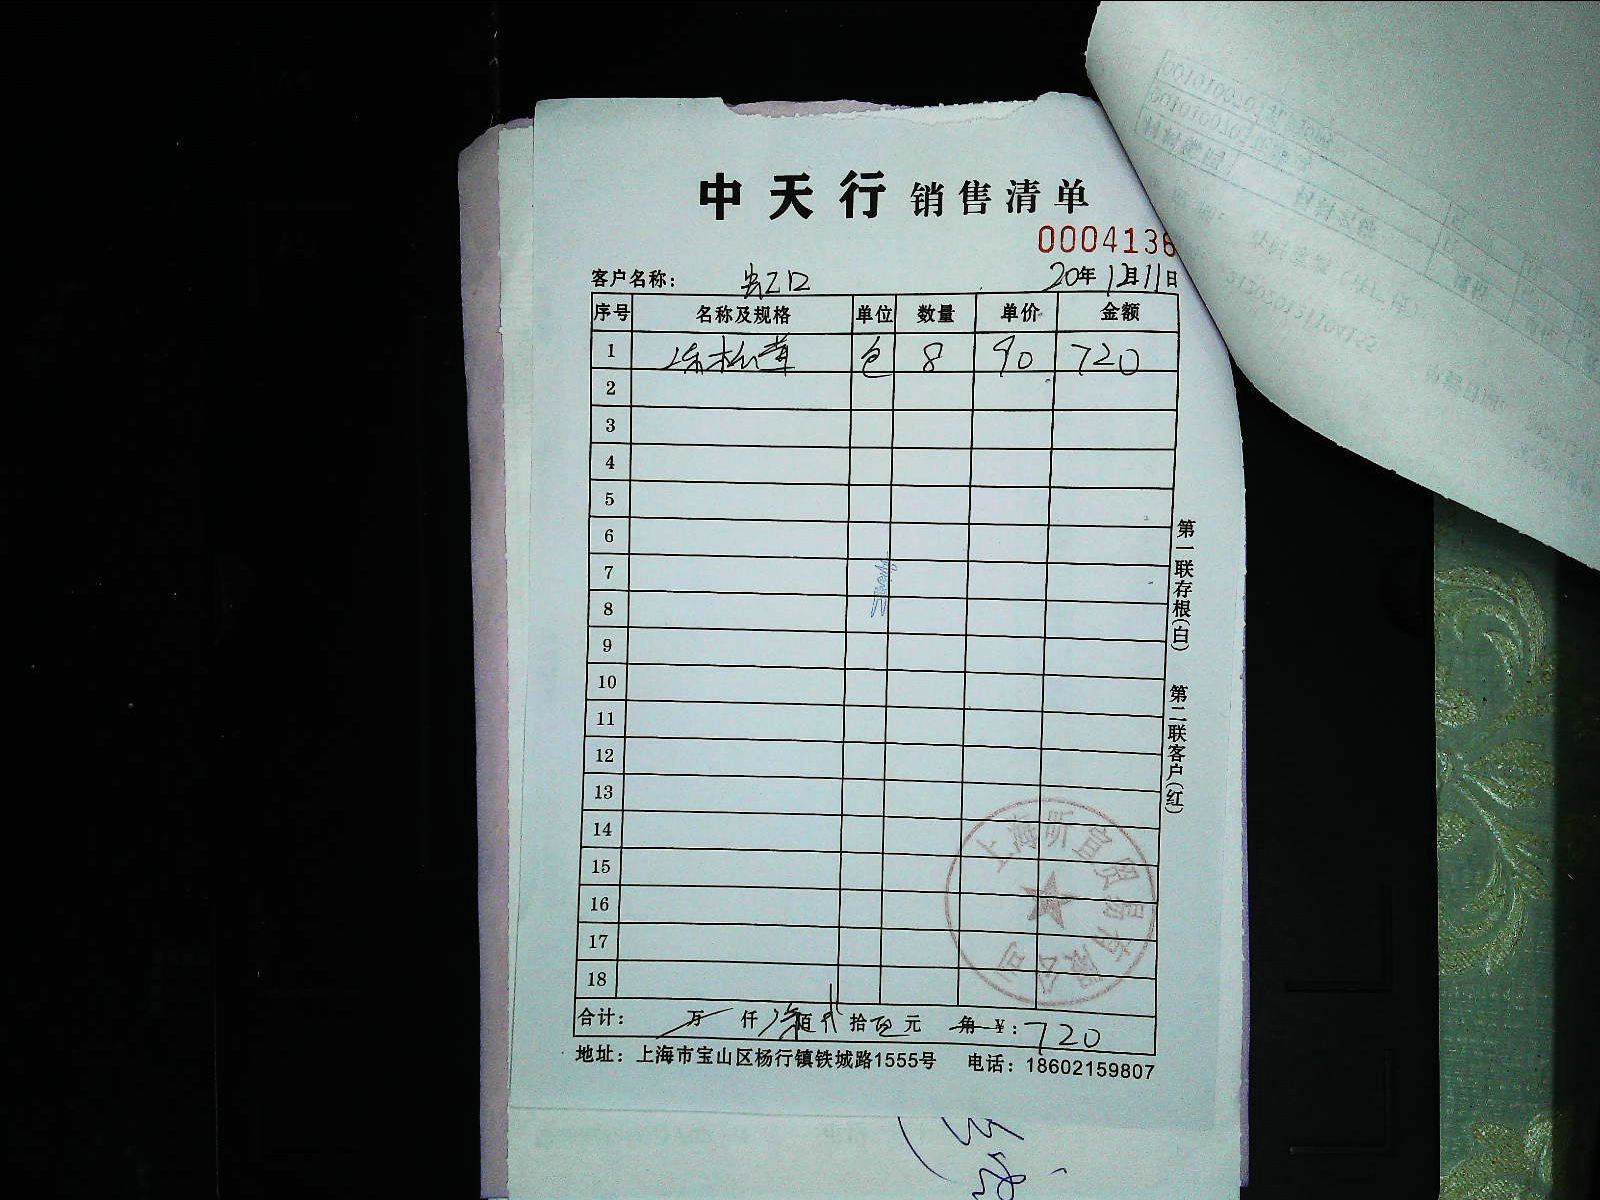 中天行 销售清单
0004136
客户名称：
20年12月11日
序号 名称及规格 单位 数量 单价 金额
1 冻松茸 包 8 90 720
2
3
4
5
6
7
8
9
10
11
12
13
14
15
16
17
18
合计： 万 仟 柒佰 贰拾 元 角 ¥：720
地址：上海市宝山区杨行镇铁城路1555号 电话：18602159807
第一联存根(白)
第二联客户(红)
上海昕宜贸易有限公司